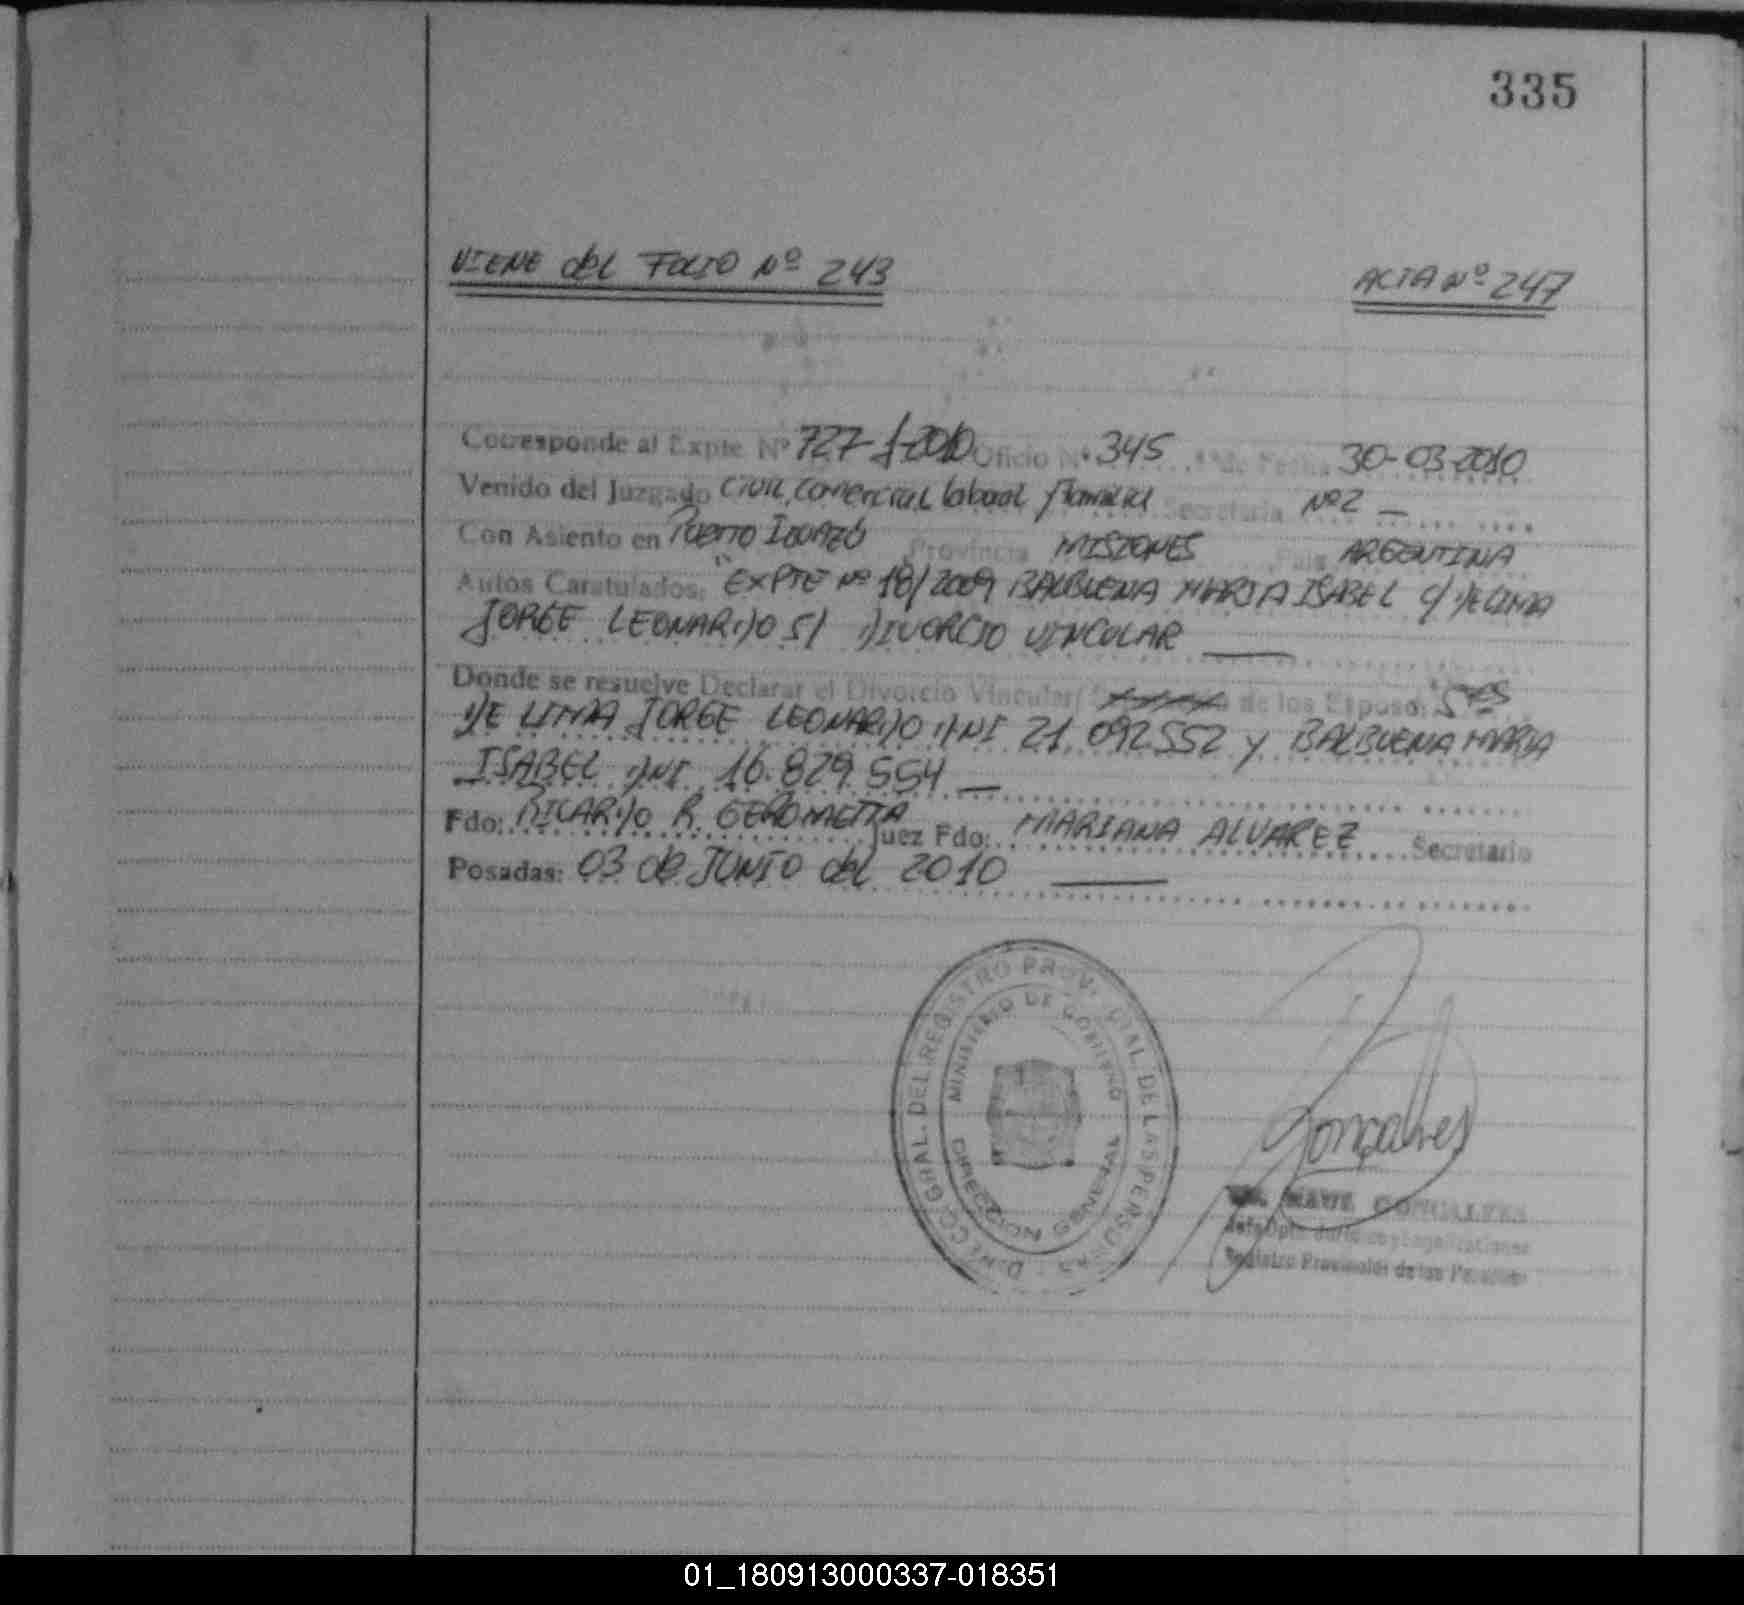 335
VIENE del FOLIO Nº 243
ACTA Nº 247
Corresponde al Expte Nº 727-J-2010 Oficio Nº 345 de Fecha 30-03-2010
Venido del Juzgado Civil, Comercial, laboral y familia Secretaria Nº2 —
Con Asiento en Puerto Iguazú Provincia MISIONES Pais ARGENTINA
Autos Caratulados: "EXPTE Nº 18/2009 BALBUENA MARIA ISABEL C/ DE LIMA
JORGE LEONARDO S/ DIVORCIO VINCULAR
Donde se resuelve Declarar el Divorcio Vincular de los Esposos: Sres
DE LIMA JORGE LEONARDO DNI 21.092.552 y BALBUENA MARIA
ISABEL DNI. 16.829.554 —
Fdo: RICARDO R. GEROMETTA Juez Fdo: MARIANA ALVAREZ Secretario
Posadas: 03 de JUNIO del 2010
DIRECC. GRAL. DEL REGISTRO PROVINCIAL DE LAS PERSONAS
MINISTERIO DE GOBIERNO
DIRECCION GENERAL
Gonçalves
GONCALVES
Registro Provincial de las Personas
01_180913000337-018351